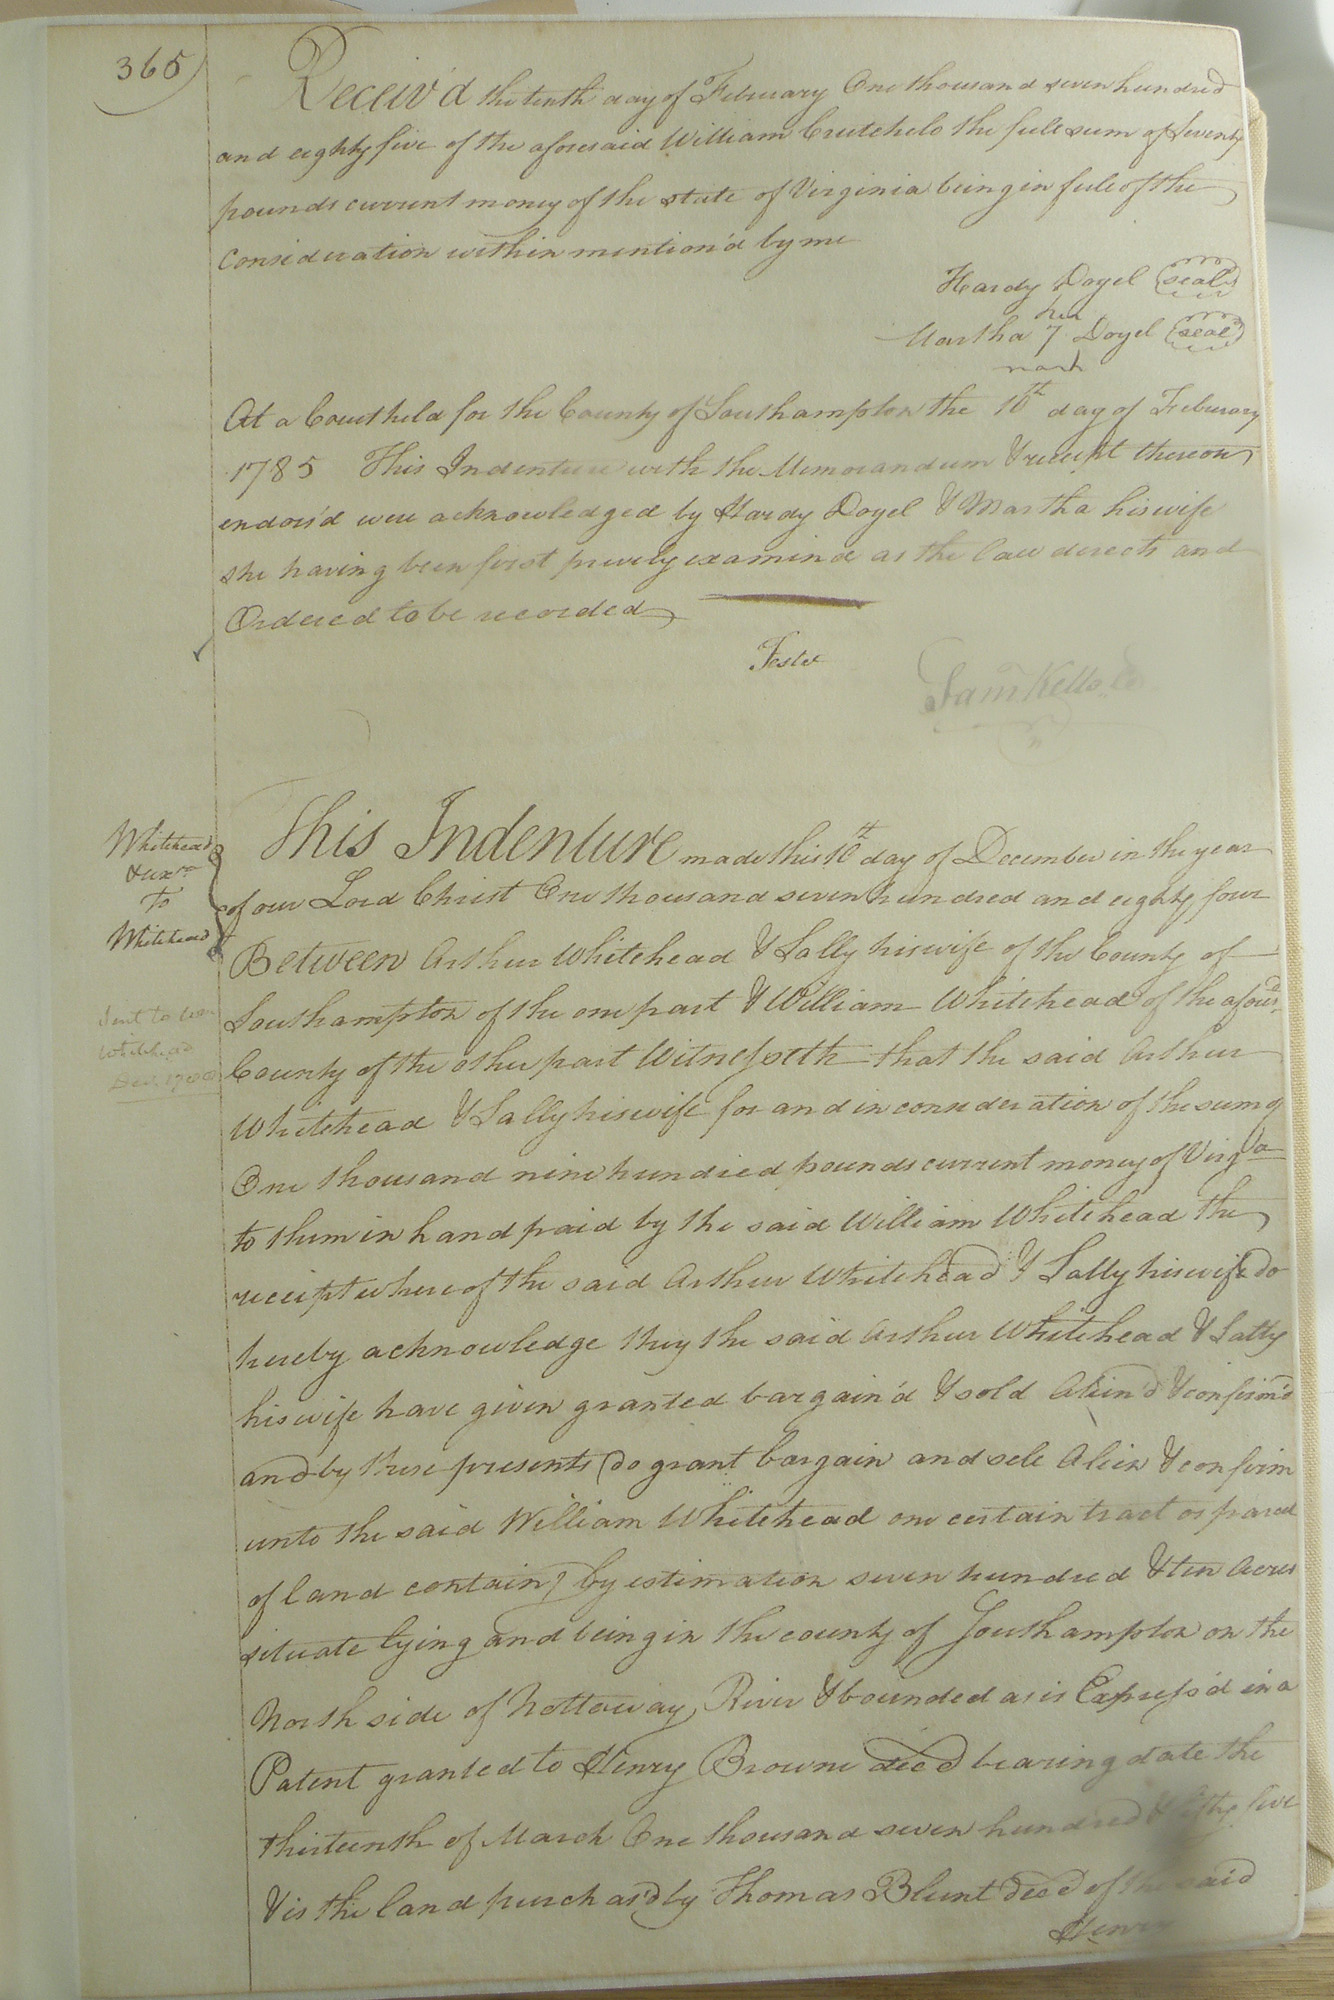 365
Receiv'd the tenth day of February One thousand seven hundred
and eighty five of the aforesaid William Crutchelo the full sum of Seventy
pounds current money of the state of Virginia being in full of the
consideration within mention'd by me
Hardy Doyel seal
her
Martha 7 Doyel seal
mark
At a Court held for the County of Southampton the 10th day of February
1785 This Indenture with the Memorandum & receipt thereon
endors'd were acknowledged by Hardy Doyel & Martha his wife
she having been first privily examind as the law directs and
Ordered to be recorded
Teste
Sam Kello
Whitehead
& uxr
To
Whitehead
Sent to
Whitehead
This Indenture made this 16th day of December in the year
of our Lord Christ One thousand seven hundred and eighty four
Between Arthur Whitehead & Sally his wife of the County of
Southampton of the one part & William Whitehead of the afousd
County of the other part Witnesseth that the said Arthur
Whitehead & Sally his wife for and in consideration of the sum of
One thousand nine hundred pounds current money of Virga
to them in hand paid by the said William Whitehead the
receipt whereof the said Arthur Whitehead & Sally his wife do
hereby acknowledge they the said Arthur Whitehead & Sally
his wife have given granted bargain'd & sold Alien'd & confirm'd
and by these presents do grant bargain and sell Alien & confirm
unto the said William Whitehead one certain tract or parcel
of land containg by estimation seven hundred & ten Acres
situate lying and being in the county of Southampton on the
North side of Nottoway River & bounded as is Express'd in a
Patent granted to Henry Browne decd bearing date the
thirteenth of March One thousand seven hundred & fifty five
& is the land purchasd by Thomas Blunt decd of the said
Henry